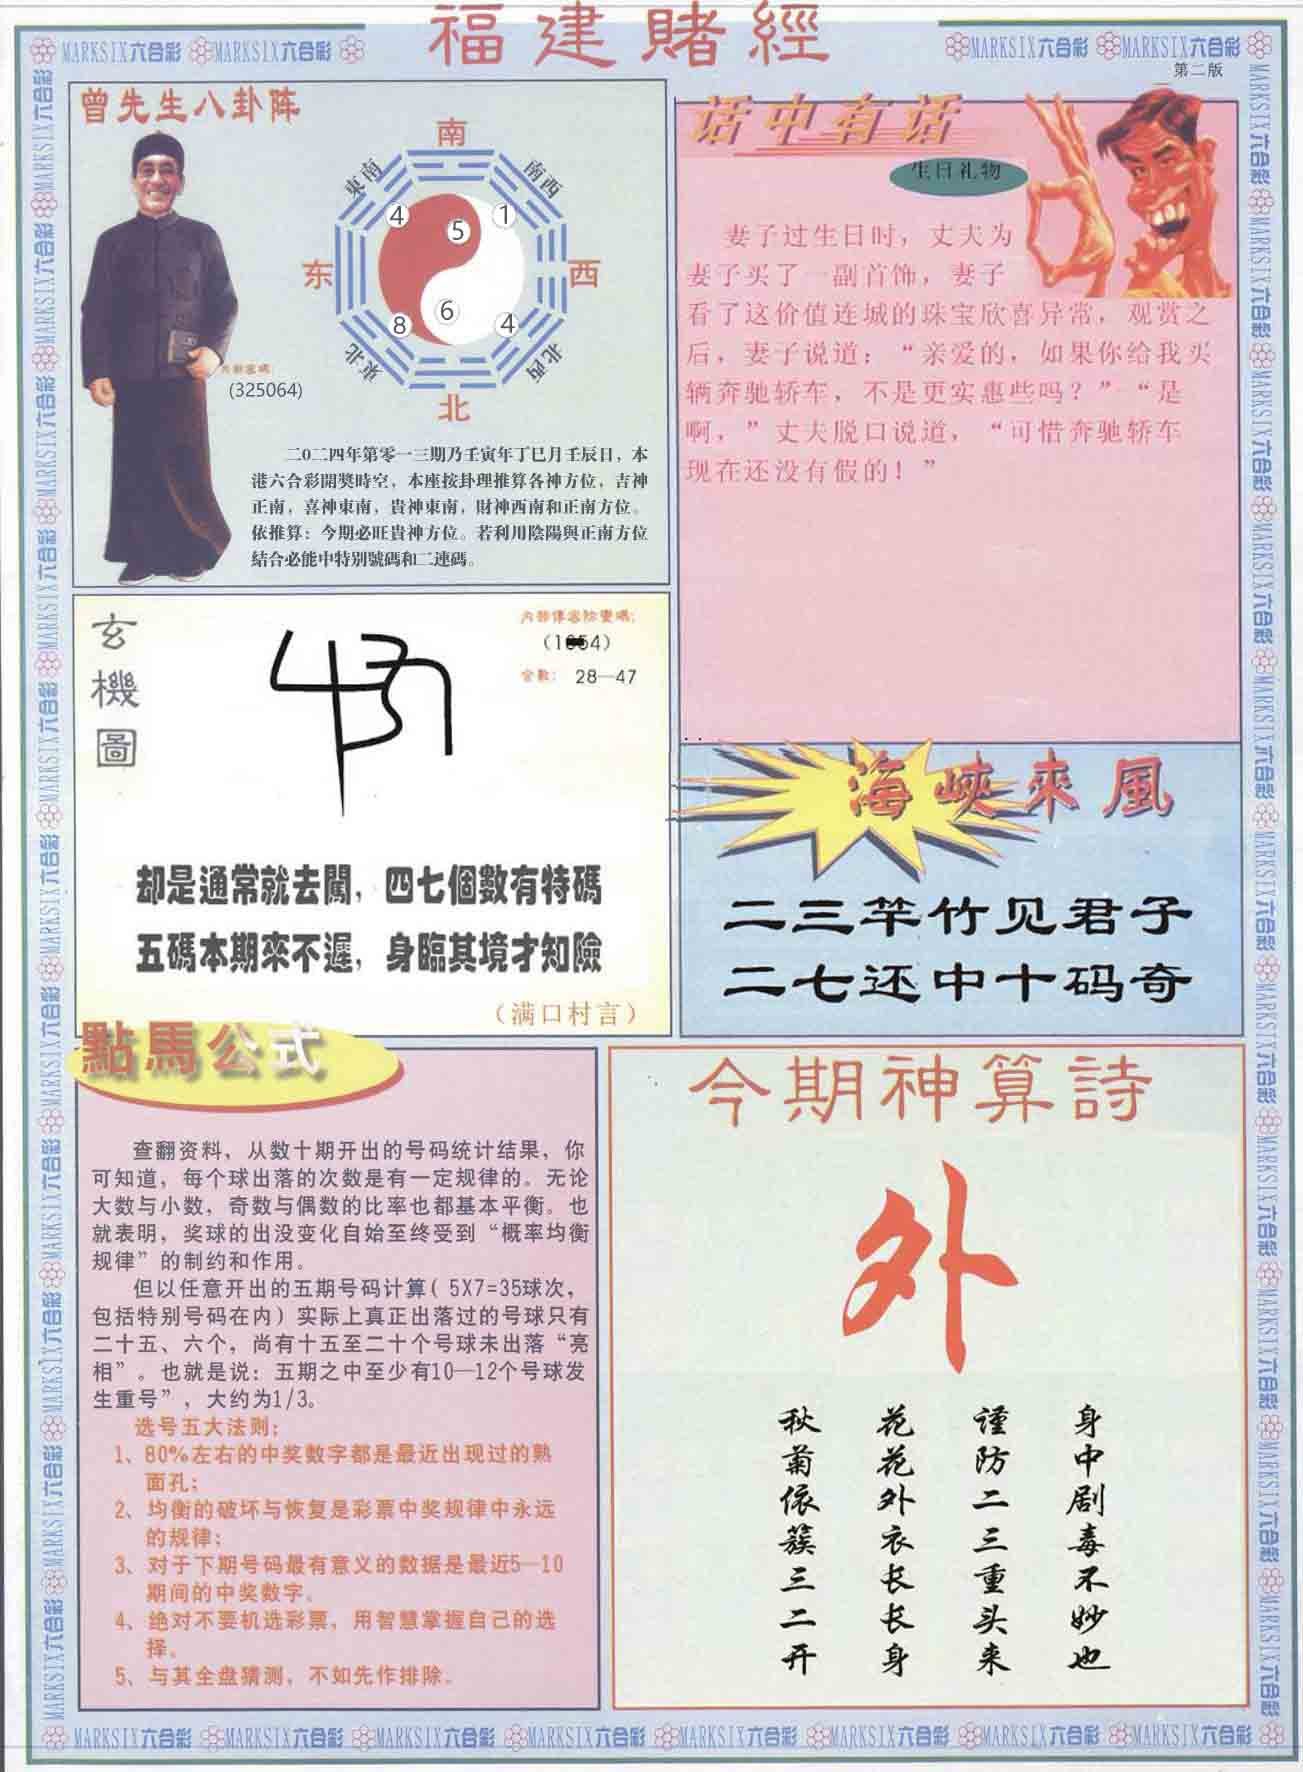 福建賭經
MARKSIX六合彩 MARKSIX六合彩
MARKSIX六合彩 MARKSIX六合彩
第二版
曾先生八卦阵
南
東南
南西
4
5
1
东
西
8
6
4
東北
北西
北
内部密碼:
(325064)
二0二四年第零一三期乃壬寅年丁巳月壬辰日，本
港六合彩開獎時空，本座按卦理推算各神方位，吉神
正南，喜神東南，貴神東南，財神西南和正南方位。
依推算：今期必旺貴神方位。若利用陰陽與正南方位
結合必能中特别號碼和二連碼。
话中有话
生日礼物
妻子过生日时，丈夫为
妻子买了一副首饰，妻子
看了这价值连城的珠宝欣喜异常，观赏之
后，妻子说道：“亲爱的，如果你给我买
辆奔驰轿车，不是更实惠些吗？”“是
啊，”丈夫脱口说道，“可惜奔驰轿车
现在还没有假的！”
玄機圖
内部傳密防變碼:
合數: 28—47
却是通常就去闖，四七個數有特碼
五碼本期來不遲，身臨其境才知險
（满口村言）
海峽來風
二三竿竹见君子
二七还中十码奇
點馬公式
查翻资料，从数十期开出的号码统计结果，你
可知道，每个球出落的次数是有一定规律的。无论
大数与小数，奇数与偶数的比率也都基本平衡。也
就表明，奖球的出没变化自始至终受到“概率均衡
规律”的制约和作用。
但以任意开出的五期号码计算( 5X7=35球次，
包括特别号码在内）实际上真正出落过的号球只有
二十五、六个，尚有十五至二十个号球未出落“亮
相”。也就是说：五期之中至少有10—12个号球发
生重号”，大约为1/3。
选号五大法则：
1、80%左右的中奖数字都是最近出现过的熟
面孔；
2、均衡的破坏与恢复是彩票中奖规律中永远
的规律；
3、对于下期号码最有意义的数据是最近5—10
期间的中奖数字。
4、绝对不要机选彩票，用智慧掌握自己的选
择。
5、与其全盘猜测，不如先作排除。
今期神算詩
外
身中剧毒不妙也
谨防二三重头来
花花外衣长长身
秋菊依簇三二开
MARKSIX六合彩 MARKSIX六合彩 MARKSIX六合彩 MARKSIX六合彩 MARKSIX六合彩 MARKSIX六合彩 MARKSIX六合彩 MARKSIX六合彩